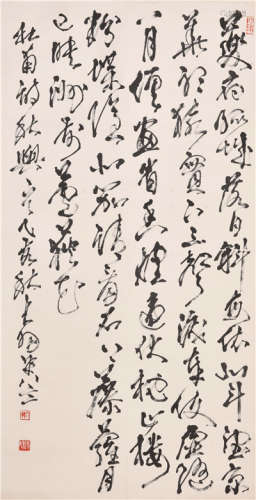 夔府孤城落日斜每依北斗望京
華聽猿實下三聲淚奉使虛隨
八月槎畫省香爐違伏枕山樓
粉堞隱悲笳請看石上藤蘿月
已映洲前蘆荻花
杜甫詩秋興